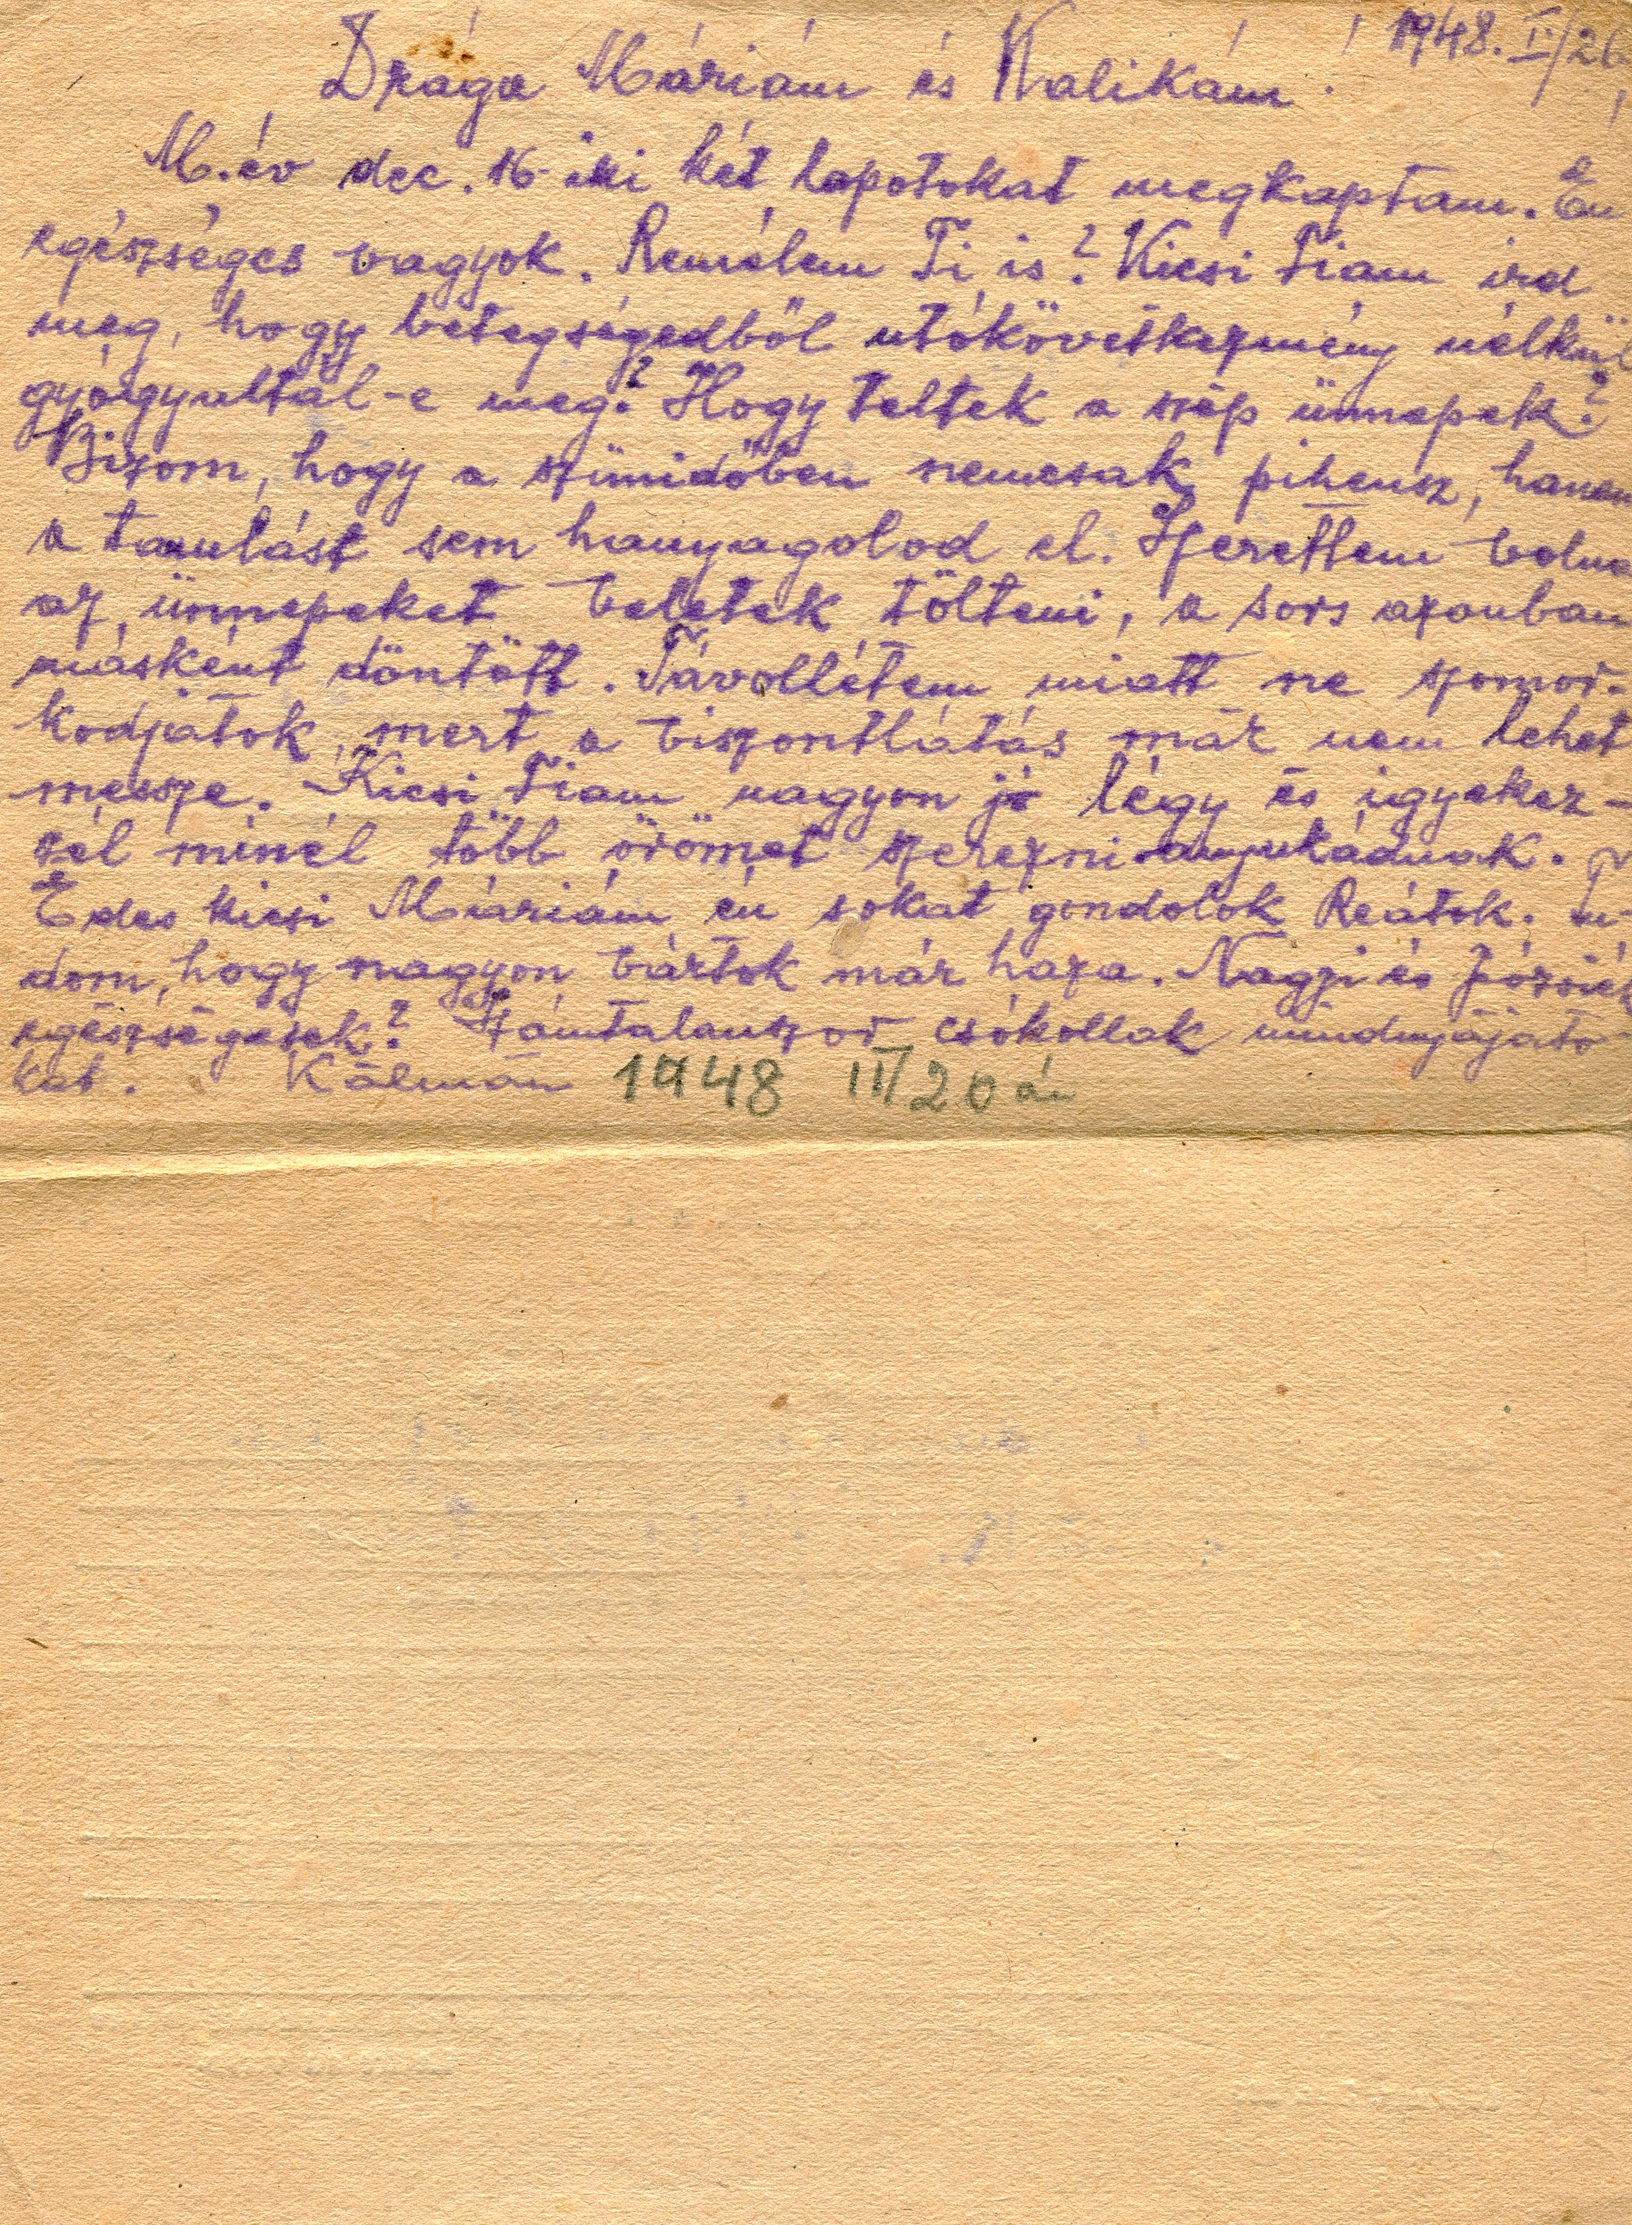 1948. I/26
Drága Máriám és Walikám!
M. év dec. 16-iki két lapotokat megkaptam. Én
egészséges vagyok. Remélem Ti is? Kicsi Fiam ird
meg, hogy betegségedből utókövetkezmény nélkül
gyógyultál-e meg? Hogy teltek a szép ünnepek?
Bizom, hogy a szünidőben nemcsak pihensz, hanem
a tanulást sem hanyagolod el. Szerettem volna
az ünnepeket veletek tölteni, a sors azonban
másként döntött. Távollétem miatt ne szomor-
kodjatok, mert a viszontlátás már nem lehet
messze. Kicsi Fiam nagyon jó légy és igyekez-
zél minél több örömet szerezni anyukádnak.
Édes kicsi Máriám én sokat gondolok Reátok. Tu-
dom, hogy nagyon vártok már haza. Nagyi és Józsiék
egészségesek? Számtalanszor csókollak mindnyájato-
kat. Kálmán 1948 III/20 án